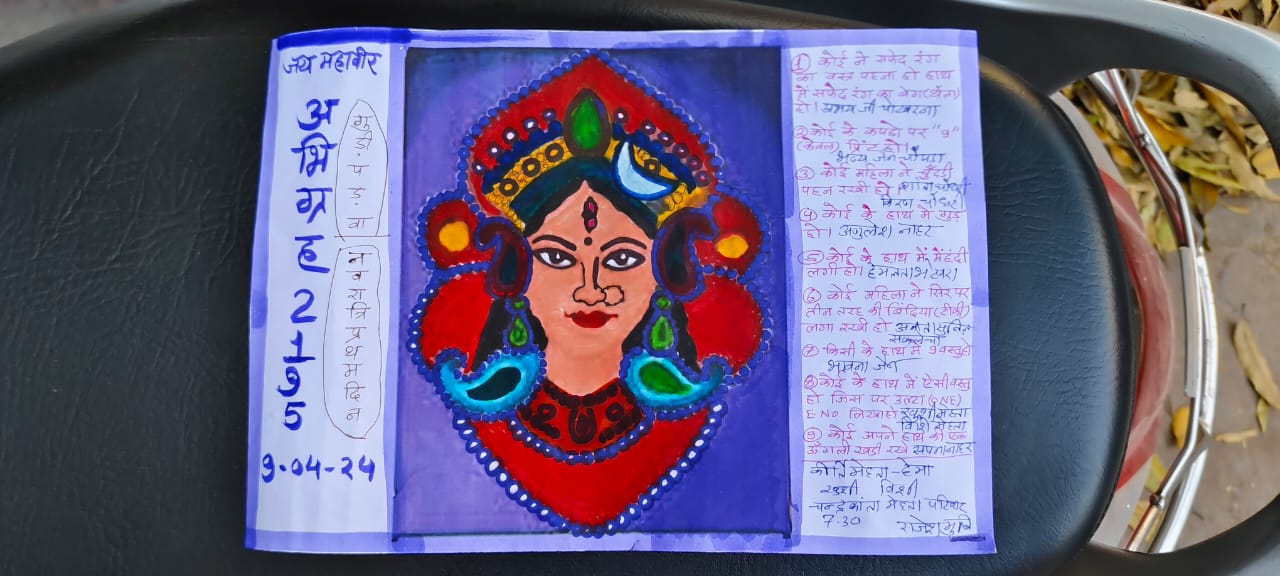 जय महावीर
अभिग्रह 2195
गुडी पड़वा
नवरात्रि प्रथम दिन
9-04-24
① कोई ने सफेद रंग
का वस्त्र पहना हो हाथ
में सफेद रंग का बेग (थैला)
हो। अभय जी पोखरना
② कोई के कपडो पर "9"
(केवल) प्रिंट हो।
भव्य जैन चोपडा
③ कोई महिला ने चुँदडी
पहन रखी हो
④ कोई के हाथ में गुड़
हो। अनुलेश नाहर
⑤ कोई के हाथ में मेंहंदी
लगी हो। हेमलता
⑥ कोई महिला ने सिर पर
तीन तरह की बिंदिया (टीकी)
लगा रखी हो
⑦ किसी के हाथ में 9 वस्तु हो
भावना जैन
⑧ कोई के हाथ में ऐसी वस्तु
हो जिस पर उल्टा (ONE)
ENO लिखा हो खुशी मेहता
विधि मेहता
⑨ कोई अपने हाथ की एक
ऊँगली खडी रखे सपना नाहर
कीर्ति मेहता - हेमा
खुशी विधी
चन्द्रकांता मेहता परिवार
7.30 राजेश मुनि